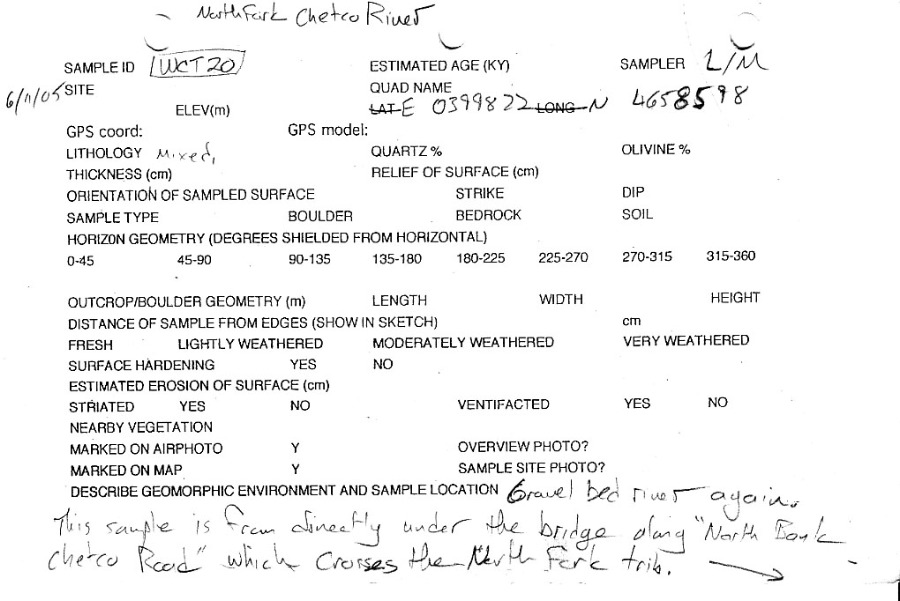 North Fork Chetco River
SAMPLE ID WCT20 ESTIMATED AGE (KY) SAMPLER L/M
6/11/05 SITE QUAD NAME
ELEV(m) LAT E 0399822 LONG N 4658598
GPS coord: GPS model:
LITHOLOGY Mixed, QUARTZ % OLIVINE %
THICKNESS (cm) RELIEF OF SURFACE (cm)
ORIENTATION OF SAMPLED SURFACE STRIKE DIP
SAMPLE TYPE BOULDER BEDROCK SOIL
HORIZON GEOMETRY (DEGREES SHIELDED FROM HORIZONTAL)
0-45 45-90 90-135 135-180 180-225 225-270 270-315 315-360
OUTCROP/BOULDER GEOMETRY (m) LENGTH WIDTH HEIGHT
DISTANCE OF SAMPLE FROM EDGES (SHOW IN SKETCH) cm
FRESH LIGHTLY WEATHERED MODERATELY WEATHERED VERY WEATHERED
SURFACE HARDENING YES NO
ESTIMATED EROSION OF SURFACE (cm)
STRIATED YES NO VENTIFACTED YES NO
NEARBY VEGETATION
MARKED ON AIRPHOTO Y OVERVIEW PHOTO?
MARKED ON MAP Y SAMPLE SITE PHOTO?
DESCRIBE GEOMORPHIC ENVIRONMENT AND SAMPLE LOCATION Gravel bed river again.
This sample is from directly under the bridge along "North Bank
Chetco Road" which crosses the North Fork trib.